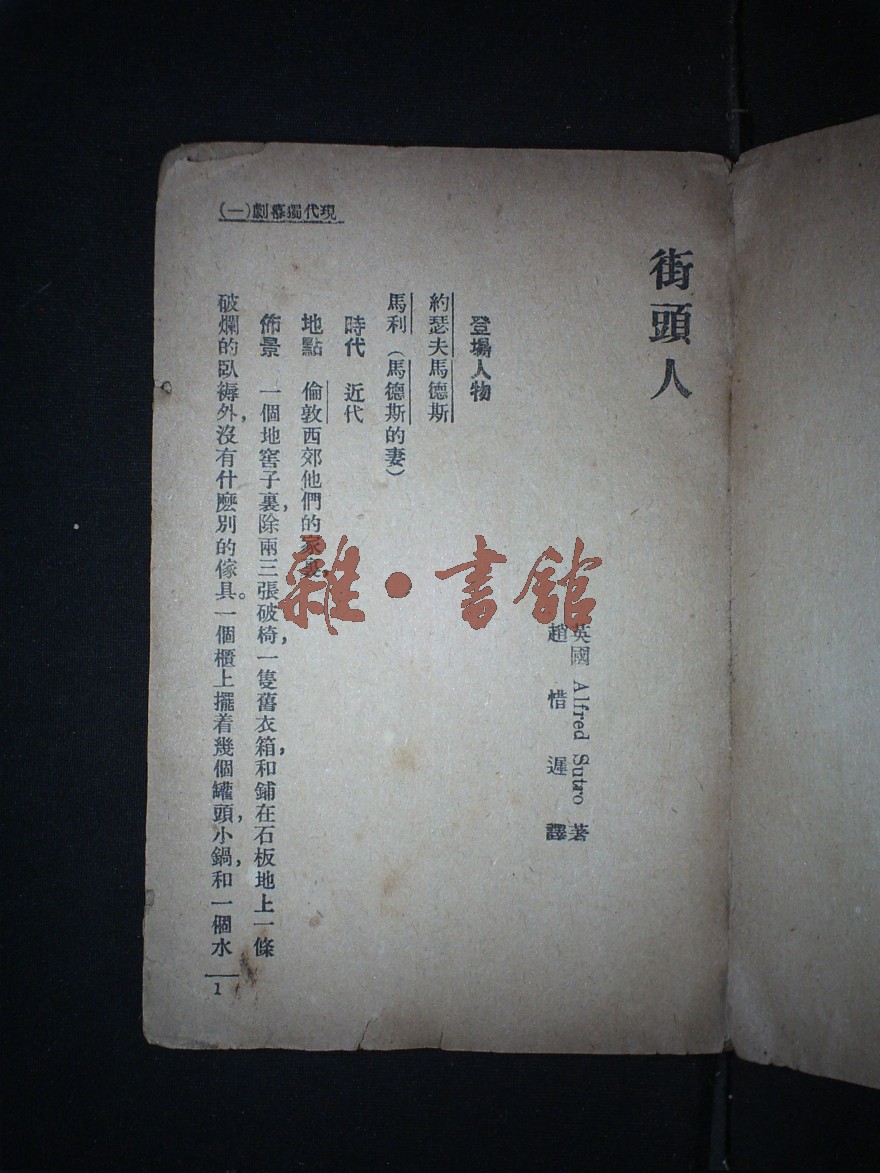 現代獨幕劇(一)
街頭人
英國 Alfred Sutro 著
趙惜遲 譯
登場人物
約瑟夫馬德斯
馬利(馬德斯的妻)
時代 近代
地點 倫敦西郊他們的家裏,
佈景 一個地窖子裏,除兩三張破椅,一隻舊衣箱,和鋪在石板地上一條
破爛的臥褥外,沒有什麽別的傢具。一個櫃上擺着幾個罐頭,小鍋,和一個水
1
雜·書館